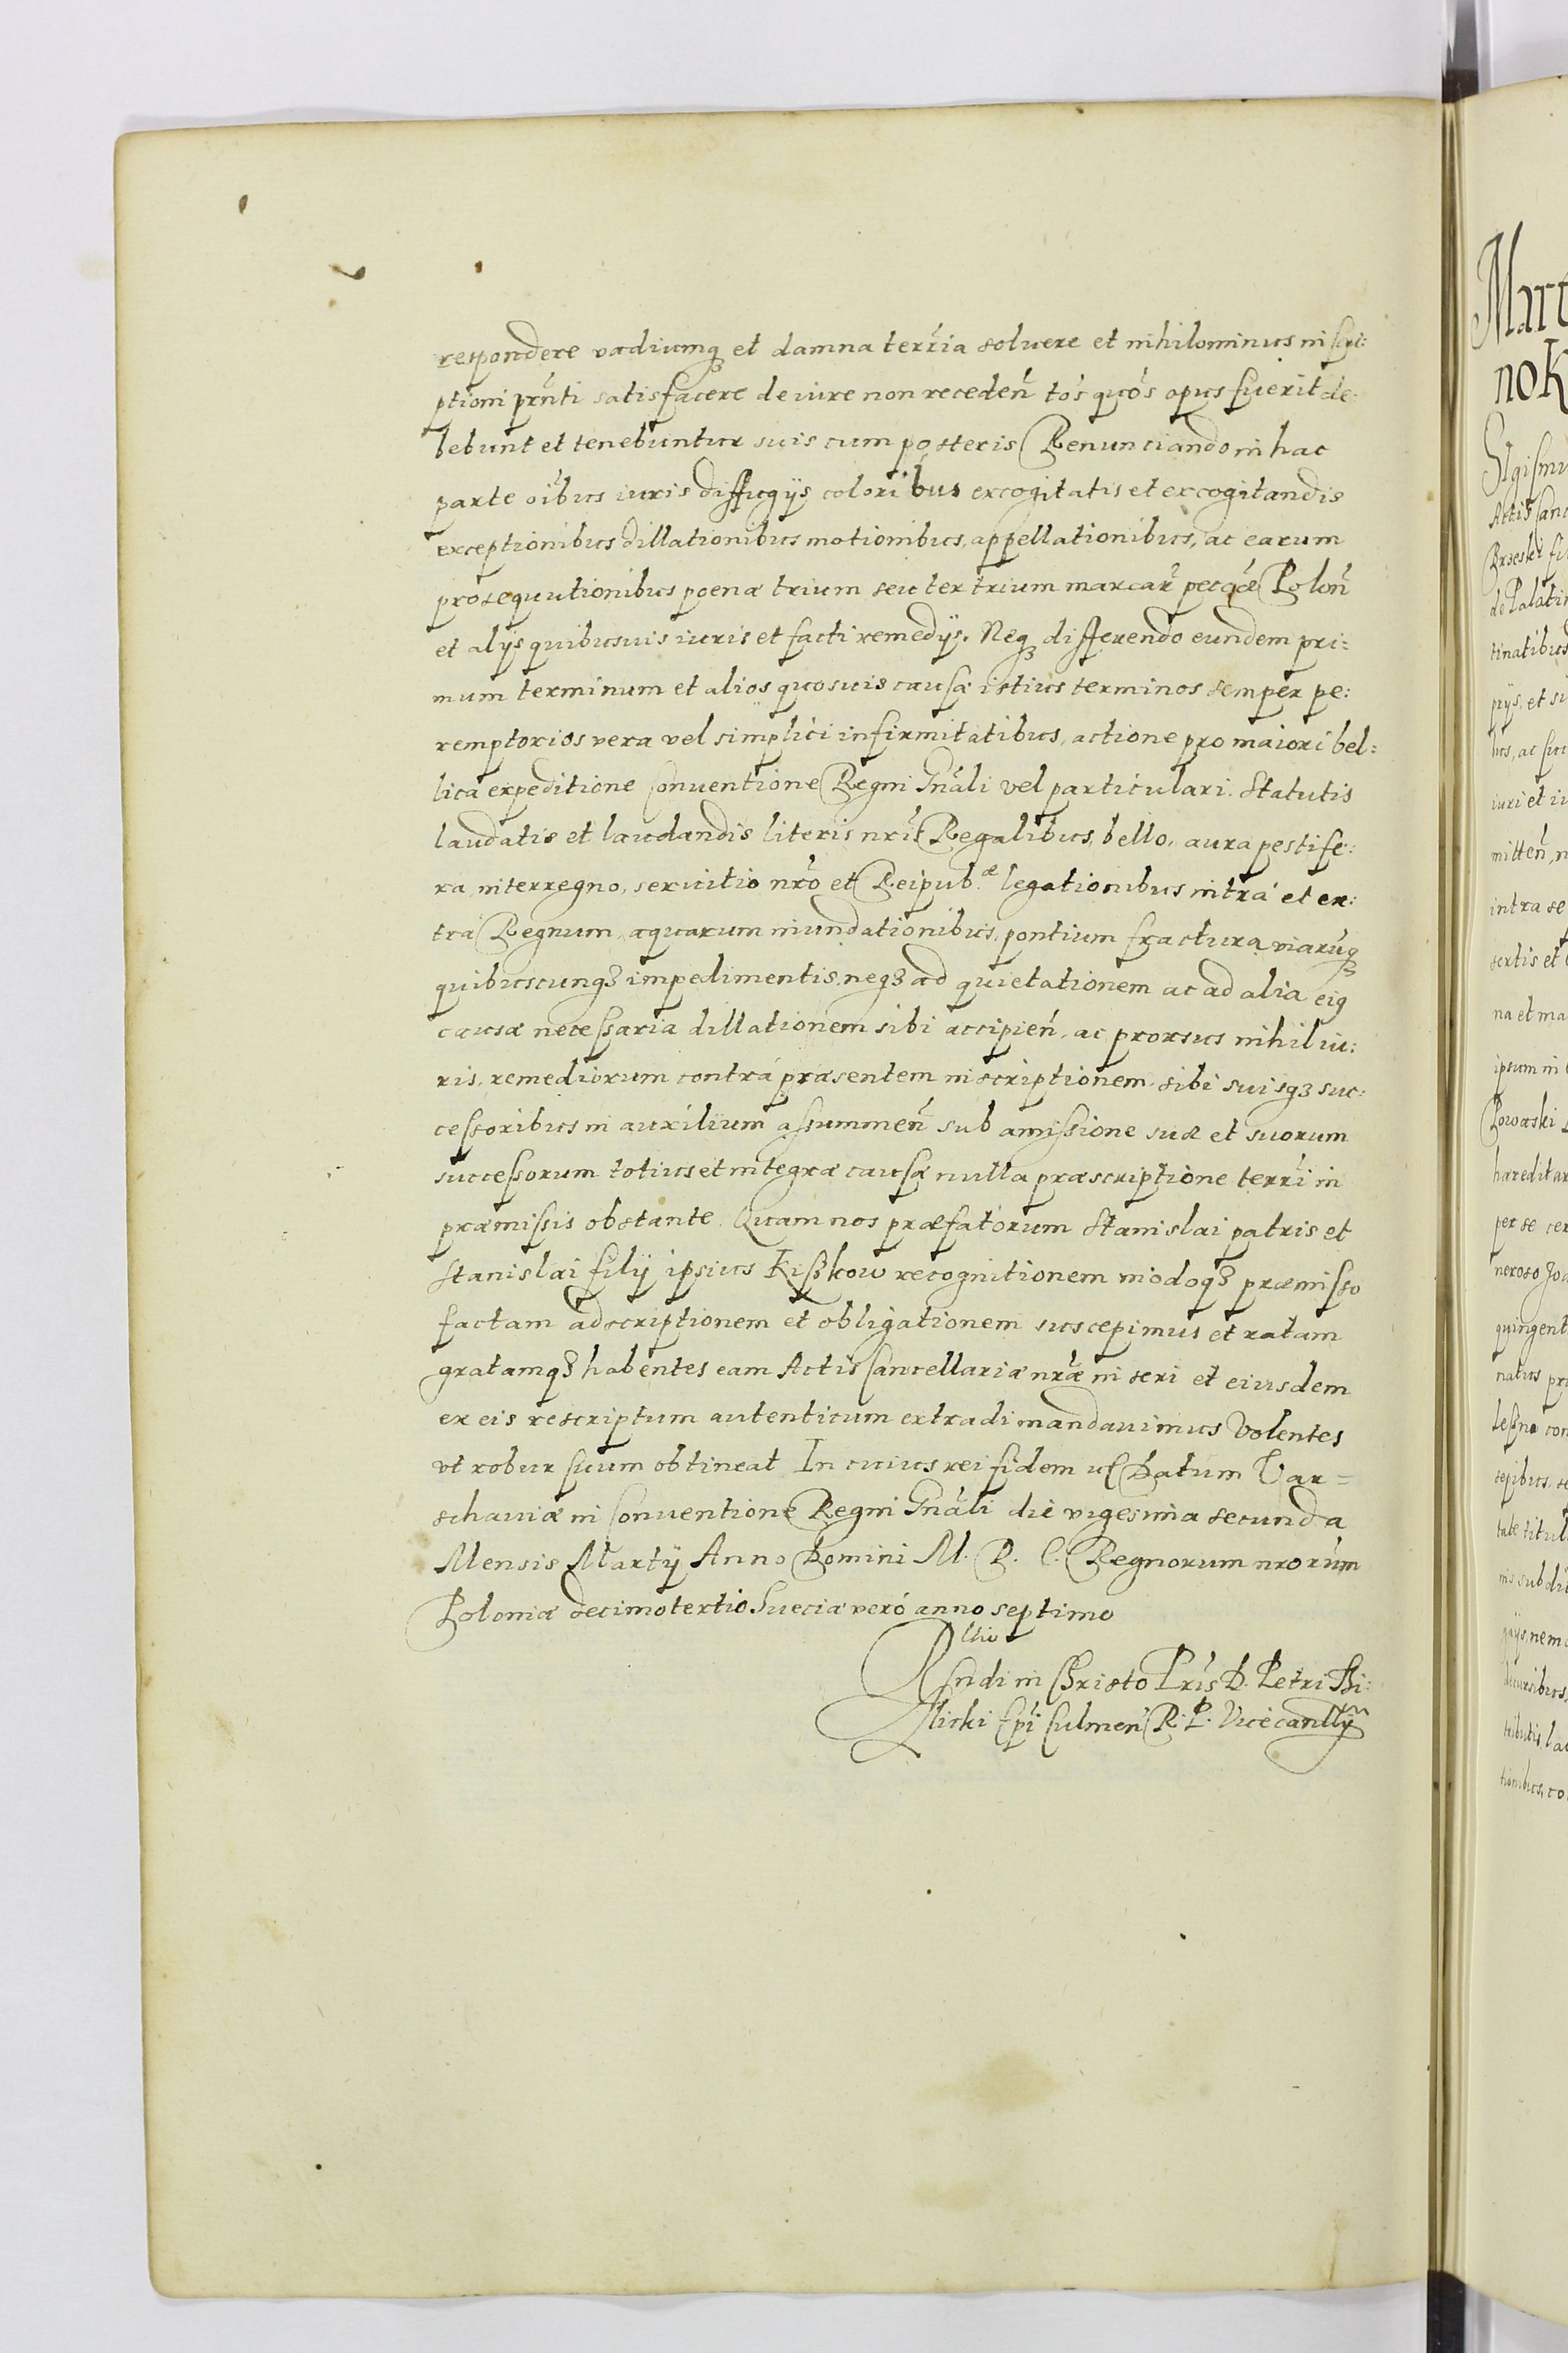 respondere vadiumq₃ et damna terr̃ia soluere et nihilominus inscri:
ptioni pr̃nti satisfacere de iure non receden̄ to's quo's opus fuerit de:
bebunt et tenebuntur suis cum posteris Renunciando in hac
parte oĩbus iuris diffugijs coloribus excogitatis et excogitandis
exceptionibus dillationibus motionibus, appellationibus, ac earum
prosequutionibus poenæ trium seu ter trium marcar̃ pecq̃æ Polon̄
et alijs quibusuis iuris et facti remedijs. Neq₃ differendo eundem pri:
mum terminum et alios quosuis causæ istius terminos semper pe:
remptorios vera vel simplici infirmitatibus, actione pro maiori bel:
lica expeditione Conuentione Regni Gñali vel particulari. Statutis
laudatis et laudandis literis nr̃is Regalibus, bello, aura pestife:
ra, interregno, seruitio nr̃o et Reipub.æ legationibus intrà et ex:
trà Regnum, aquarum inundationibus, pontium fractura, viarũq₃
quibuscunq₃ impedimentis, neq₃ ad quietationem ac ad alia eig
causæ necessaria dillationem sibi accipien̄, ac prorsus nihil iu:
ris, remediorum contrà præsentem inscriptionem sibi suisq₃ suc:
cessoribus in auxilium assummen̄ sub amissione suæ et suorum
successorum totius et integræ causæ nulla præscriptione terr̃i in
præmissis obstante. Quam nos præfatorum Stanislai patris et
Stanislai filij ipsius Kißkow recognitionem modoq₃ præmisso
factam adscriptionem et obligationem suscepimus et ratam
gratamq₃ habentes eam Actis Cancellariæ nr̃æ inseri et eiusdem
ex eis rescriptum autenticum extradi mandauimus Volentes
vt robur suum obtineat In cuius rei fidem Datum Var=
schauiæ in Conuentione Regni Gñali die vigesima secunda
Mensis Martij Anno Domini M. D. C. Regnorum nrorũm
Poloniæ decimotertio Sueciæ verò anno septimo
Rltio
Rñdi in Christo Pr̃is D. Petri Thi:
licki Ep̃i Culmen̄ R. P. Vicecanllrij
Mart
no K
Sigismu
Actis Canc
Brzeski fi
de Palatin
tinatibus
pijs, et si
bus, ac suc
iuri et iu
mitten̄, n
intra se
sertis et
na et ma
ipsum in
hæreditar
per se ter
neroso Joa
quingent
natus pr
con
sepibus, se
tale titul
nis subdi
gijs, nem
tributis, la
tionibus, co